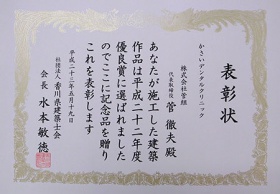 表彰状
かさいデンタルクリニック
株式会社菅組
代表取締役 菅 徹夫殿
あなたが施工した建築
作品は平成二十二年度
優良賞に選ばれました
のでここに記念品を贈り
これを表彰します
平成二十三年五月十九日
社団法人香川県建築士会
会長 水本敏徳